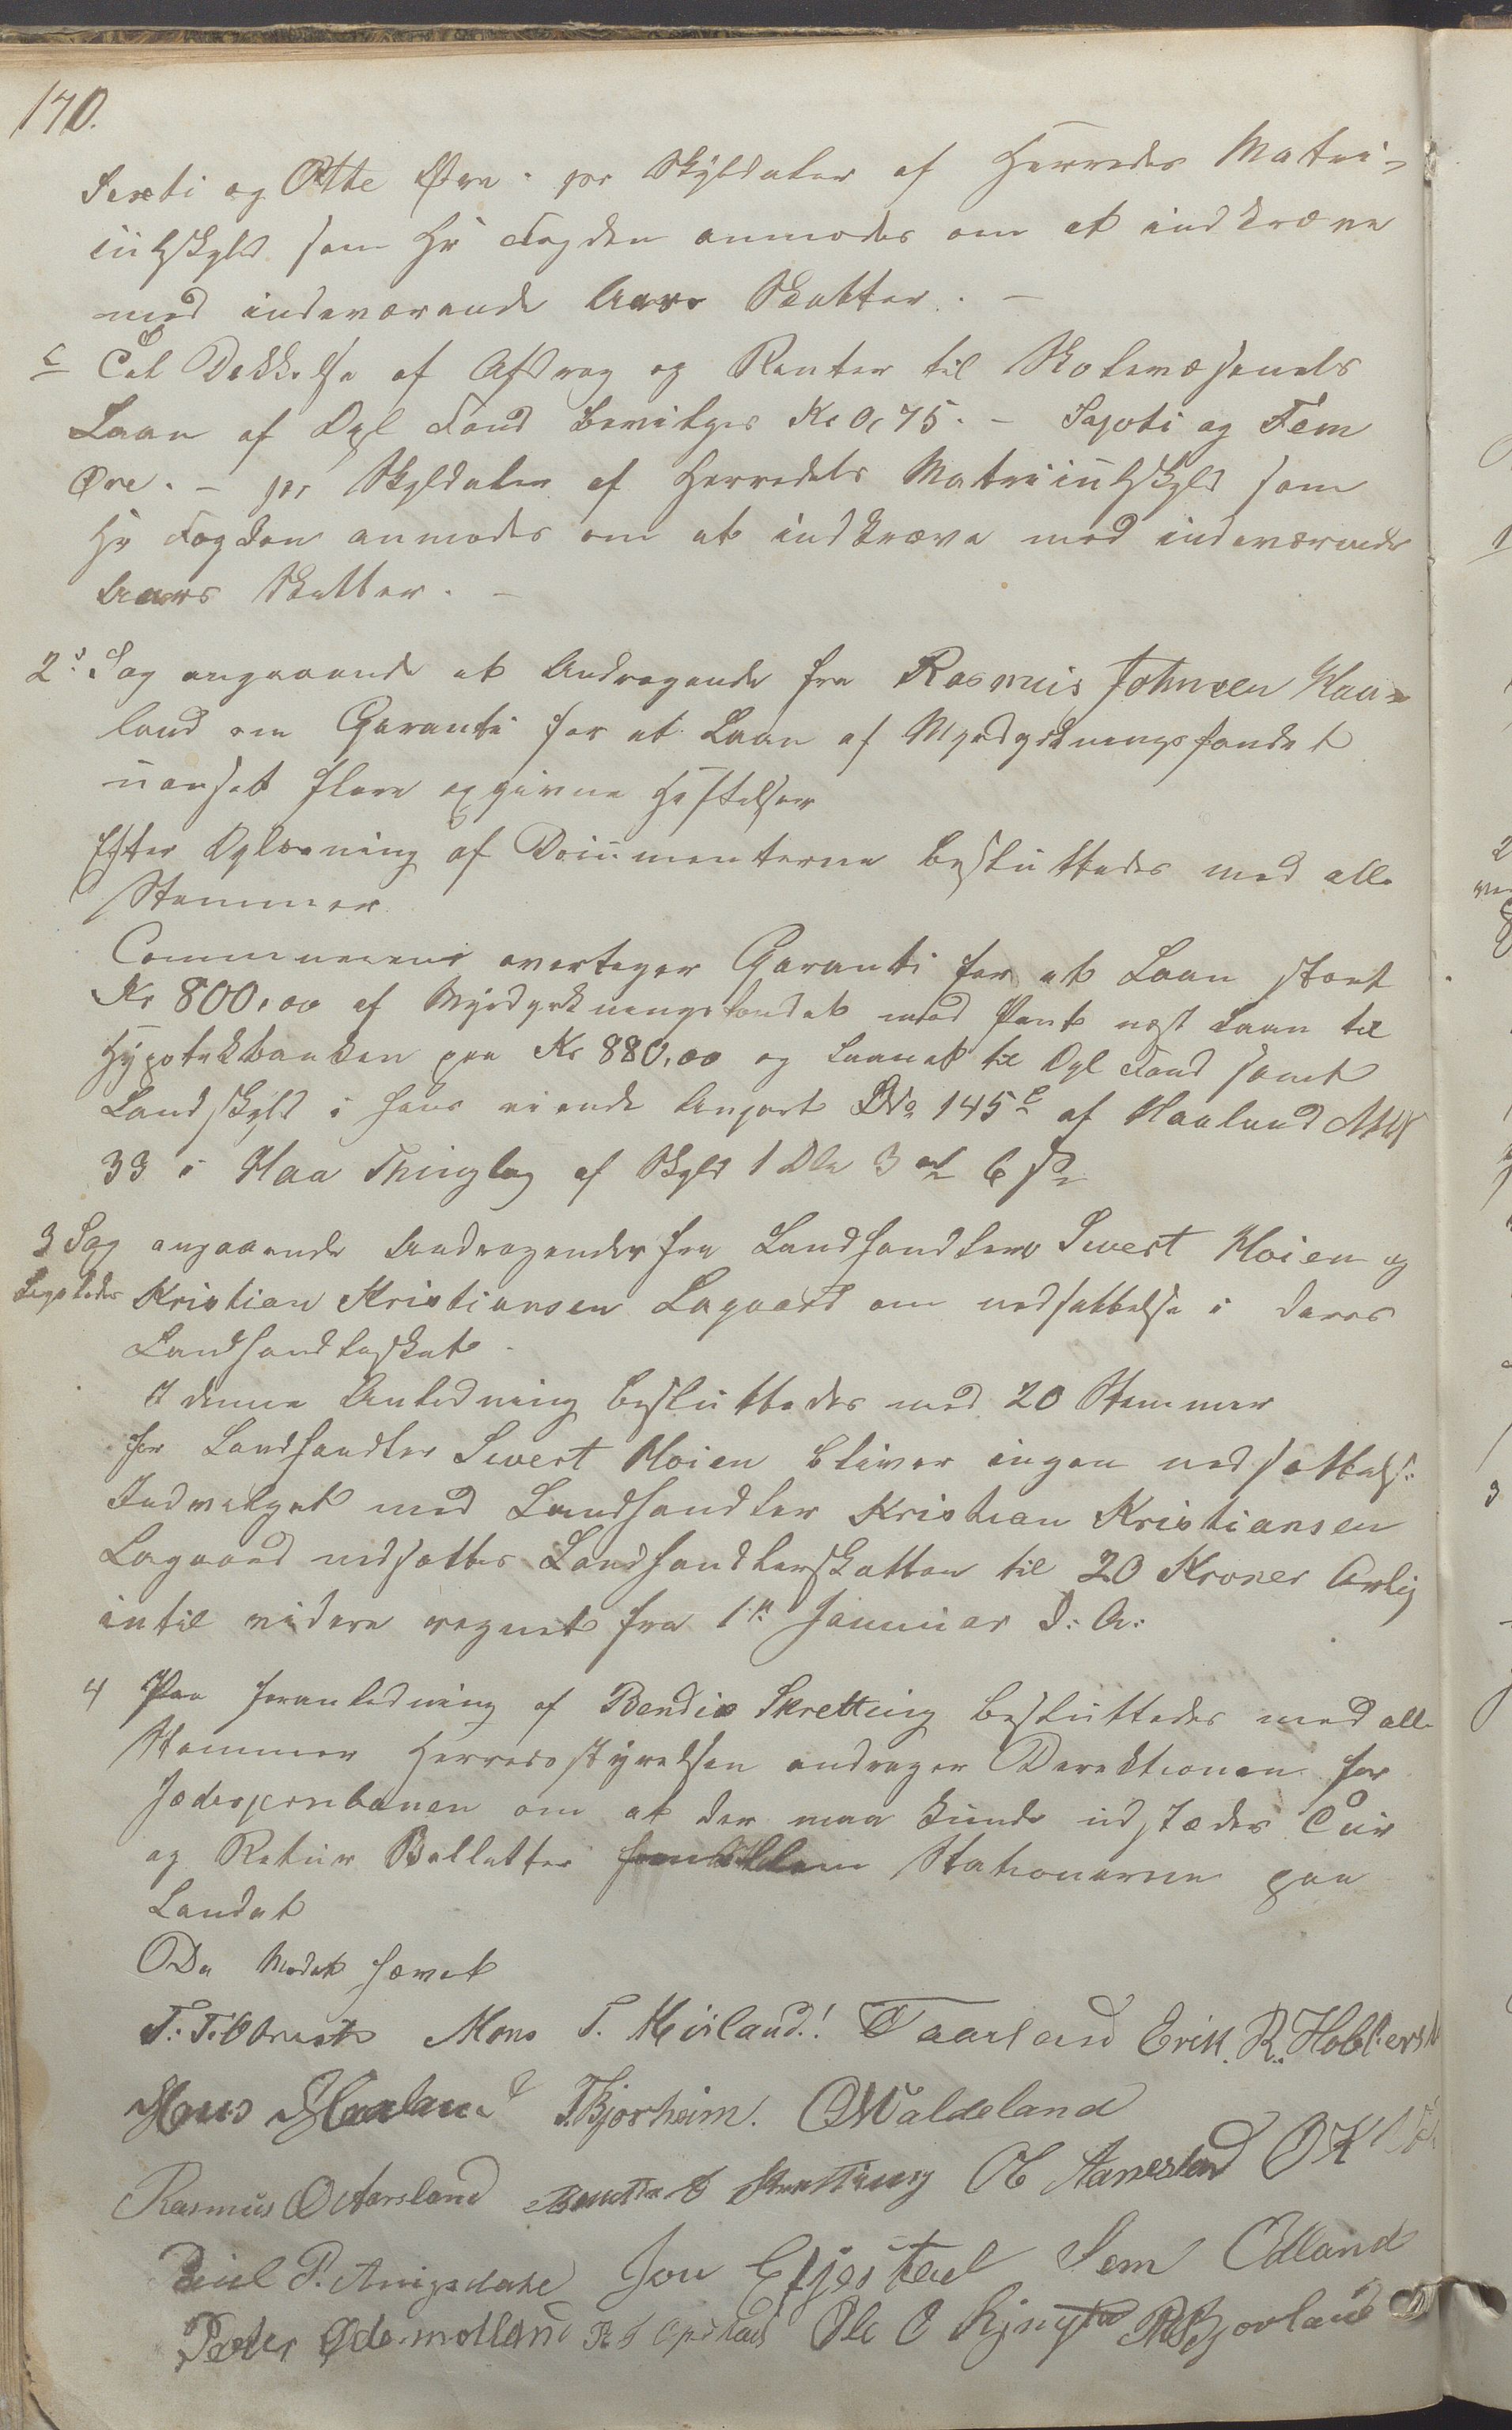 170.
Sexti og Otte Øre. pr Skyldaler af Herredes Matri-
kulskyld som Hr Fogden anmodes om at indkræve
med indeværende Aars Skatter. –
c Til Dekkelse af Afdrag og Renter til Skolevæsenets
Laan af Opl Fond bevilges Kr 0,75. – Sÿvti og Fem
Øre. – pr Skyldaler af Herredets Matrikulskyld som
Hr Fogden anmodes om at indkræve med indeværende
Aars Skatter. –
2. Sag angaaende et Andragende fra Rasmus Johnsen Haa-
land om Garanti for et Laan af Myrdyrkningsfondet
uanset flere opgivne Heftelser
Efter Oplæsning af Documenterne besluttedes med alle
Stemmer
Communenen overtager Garanti for et Laan stort
Kr 800,00 af Myrdyrkningsfondet med Pant næst Laan til
Hypotekbanken paa Kr 880,00 og Laanet til Opl Fond samt
Landskyld i hans eiende Anpart LNo 145 c af Haaland MNr
33 i Haa Thinglag af Skyld 1 Dlr 3 ort 6 s
3 Sag angaaende Andragender fra Landhandlere Sivert Moien og
Kristian Kristiansen Lagaard om nedsættelse i deres
Landhandleskat.
I denne Anledning besluttedes med 20 Stemmer
for Landhandler Sivert Moien bliver ingen nedsættelse
Indvilget med Landhandler Kristian Kristiansen
Lagaard nedsættes Landhandlerskatten til 20 Kroner Arlig
intil videre regnet fra 1st Januar d: A:
4 Paa foranledning af Bendix Skretting besluttedes med alle
Stemmer Herredsstyrelsen andrager Derektionen for
Jæderjernbanen om at der maa kunde udstædes Tur
og Retur Belletter Stationerne paa
Landet
Da Mødet hævet
Mons T. Meiland! T Aarland Erik. R.
Hans Haaland T. Bjorheim. O Waldeland
Rasmus O Aarsland Skretting O Aanestad O K
Poul P. Anigsdale Jon Efjestad Sem Edland
Peder Ødemotland Ole O Bjorland